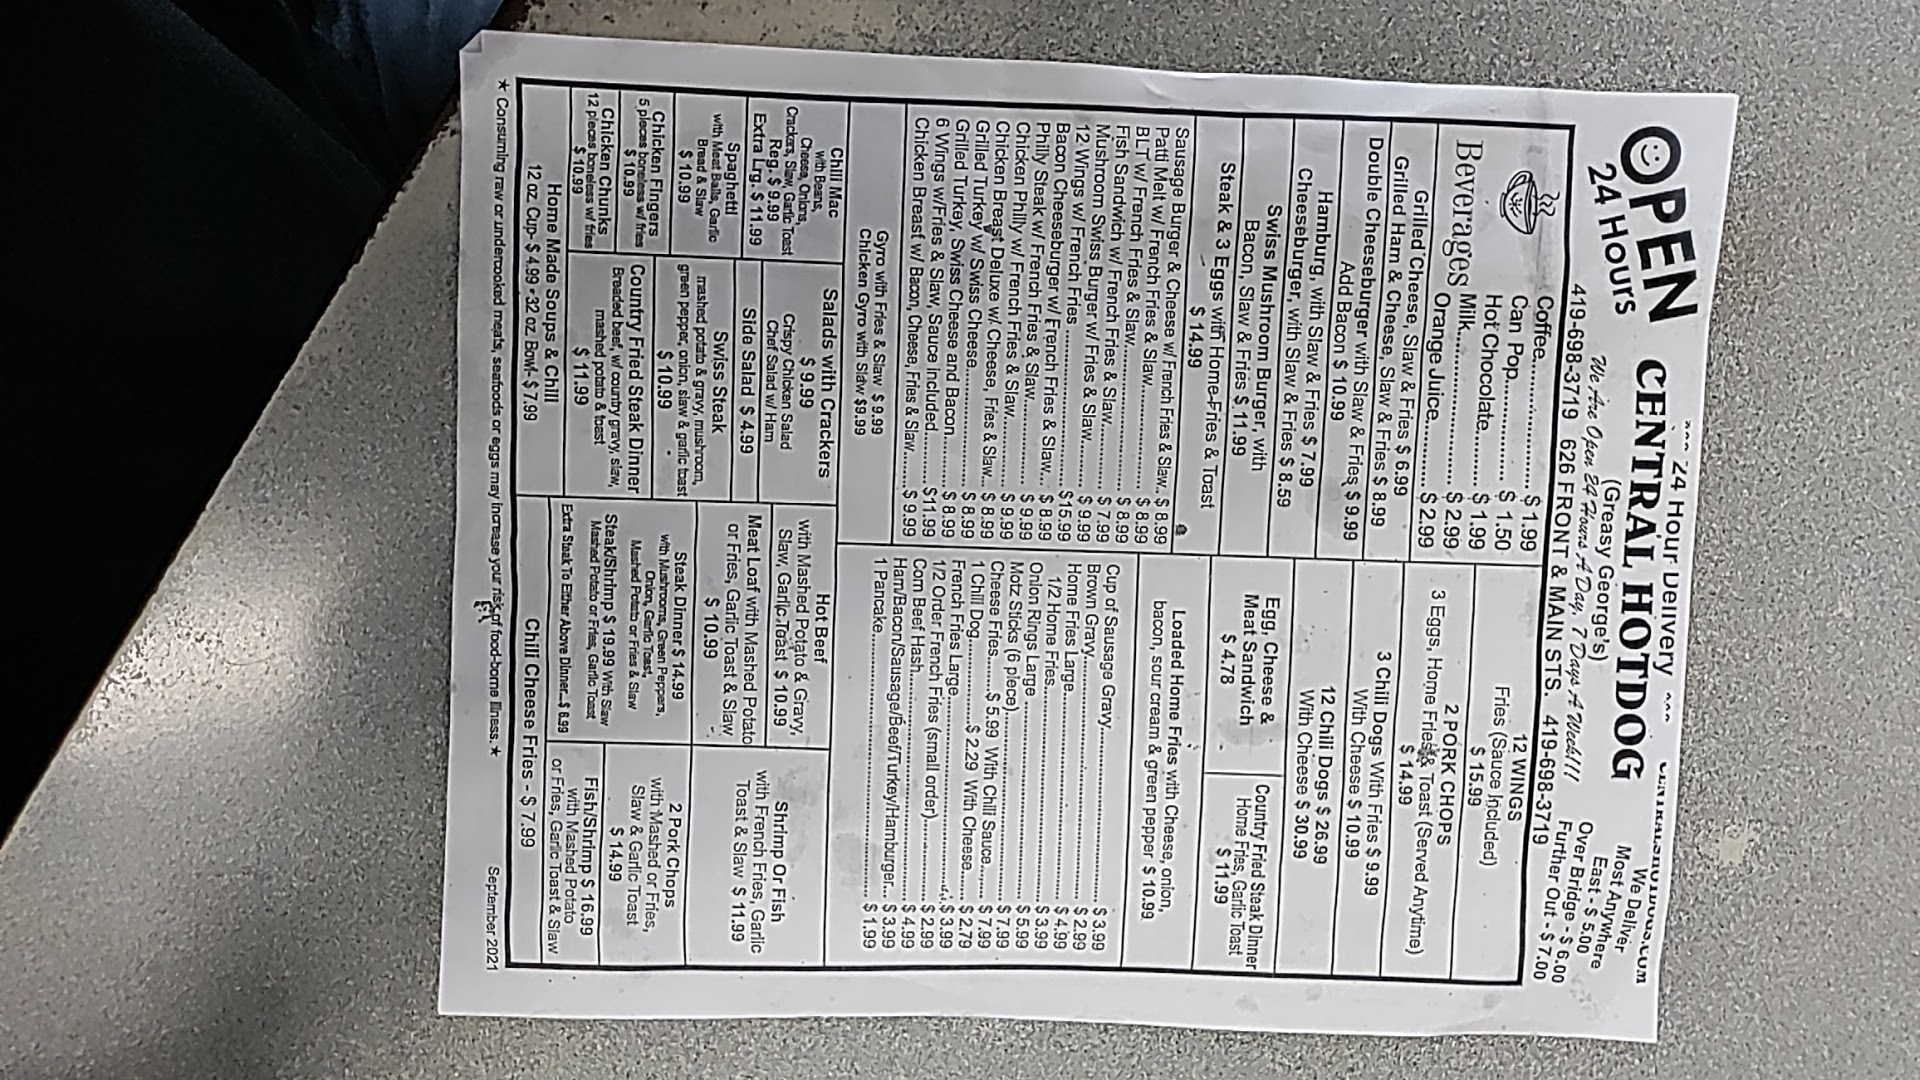 24 Hour Delivery
OPEN
24 Hours
CENTRAL HOTDOG
(Greasy George's)
We Are Open 24 Hours A Day, 7 Days A Week!!!
419-698-3719 626 FRONT & MAIN STS. 419-698-3719
We Deliver
Most Anywhere
East - $ 5.00
Over Bridge - $ 6.00
Further Out - $ 7.00
Beverages
Coffee................ $ 1.99
Can Pop............... $ 1.50
Hot Chocolate......... $ 1.99
Milk.................. $ 2.99
Orange Juice.......... $ 2.99
Grilled Cheese, Slaw & Fries $ 6.99
Grilled Ham & Cheese, Slaw & Fries $ 8.99
Double Cheeseburger with Slaw & Fries $ 9.99
Add Bacon $ 10.99
Hamburg, with Slaw & Fries $ 7.99
Cheeseburger, with Slaw & Fries $ 8.59
Swiss Mushroom Burger, with
Bacon, Slaw & Fries $ 11.99
Steak & 3 Eggs with Home-Fries & Toast
$ 14.99
Sausage Burger & Cheese w/ French Fries & Slaw.. $ 8.99
Patti Melt w/ French Fries & Slaw............ $ 8.99
BLT w/ French Fries & Slaw............ $ 8.99
Fish Sandwich w/ French Fries & Slaw.......... $ 7.99
Mushroom Swiss Burger w/ Fries & Slaw......... $ 9.99
12 Wings w/ French Fries............ $15.99
Bacon Cheeseburger w/ French Fries & Slaw... $ 8.99
Philly Steak w/ French Fries & Slaw............ $ 9.99
Chicken Philly w/ French Fries & Slaw.......... $ 9.99
Chicken Breast Deluxe w. Cheese, Fries & Slaw.. $ 8.99
Grilled Turkey w/ Swiss Cheese............ $ 8.99
Grilled Turkey, Swiss Cheese and Bacon......... $ 8.99
6 Wings w/Fries & Slaw, Sauce included........ $11.99
Chicken Breast w/ Bacon, Cheese, Fries & Slaw..... $ 9.99
Gyro with Fries & Slaw $ 9.99
Chicken Gyro with Slaw. $9.99
12 WINGS
Fries (Sauce Included)
$ 15.99
2 PORK CHOPS
3 Eggs, Home Fries & Toast (Served Anytime)
$ 14.99
3 Chili Dogs With Fries $ 9.99
With Cheese $ 10.99
12 Chili Dogs $ 26.99
With Cheese $ 30.99
Egg, Cheese &
Meat Sandwich
$ 4.78
Country Fried Steak Dinner
Home Fries, Garlic Toast
$ 11.99
Loaded Home Fries with Cheese, onion,
bacon, sour cream & green pepper $ 10.99
Cup of Sausage Gravy............ $ 3.99
Brown Gravy............ $ 2.99
Home Fries Large............ $ 4.99
1/2 Home Fries............ $ 3.99
Onion Rings Large............ $ 5.99
Motz Sticks (6 piece)............ $ 7.99
Cheese Fries........$ 5.99 With Chili Sauce..... $ 7.99
1 Chili Dog............ $ 2.29 With Cheese...... $ 2.79
French Fries Large............ $ 3.99
1/2 Order French Fries (small order)............ $ 2.99
Corn Beef Hash............ $ 4.99
Ham/Bacon/Sausage/Beef/Turkey/Hamburger.. $ 3.99
1 Pancake............ $ 1.99
Chili Mac
with Beans,
Cheese, Onions,
Crackers, Slaw, Garlic Toast
Reg. $ 9.99
Extra Lrg. $ 11.99
Spaghetti
with Meat Balls, Garlic
Bread & Slaw
$ 10.99
Chicken Fingers
5 pieces boneless w/ fries
$ 10.99
Chicken Chunks
12 pieces boneless w/ fries
$ 10.99
Salads with Crackers
$ 9.99
Crispy Chicken Salad
Chef Salad w/ Ham
Side Salad $ 4.99
Swiss Steak
mashed potato & gravy, mushroom,
green pepper, onion, slaw & garlic toast
$ 10.99
Country Fried Steak Dinner
Breaded beef, w/ country gravy, slaw,
mashed potato & toast
$ 11.99
Hot Beef
with Mashed Potato & Gravy,
Slaw, Garlic Toast $ 10.99
Meat Loaf with Mashed Potato
or Fries, Garlic Toast & Slaw
$ 10.99
Steak Dinner $ 14.99
with Mushrooms, Green Peppers,
Onion, Garlic Toast,
Mashed Potato or Fries & Slaw
Steak/Shrimp $ 19.99 With Slaw
Mashed Potato or Fries, Garlic Toast
Extra Steak To Either Above Dinner..$ 6.99
Shrimp Or Fish
with French Fries, Garlic
Toast & Slaw $ 11.99
2 Pork Chops
with Mashed or Fries,
Slaw & Garlic Toast
$ 14.99
Fish/Shrimp $ 16.99
with Mashed Potato
or Fries, Garlic Toast & Slaw
Home Made Soups & Chili
12 oz. Cup- $ 4.99 • 32 oz. Bowl- $ 7.99
Chili Cheese Fries - $ 7.99
★ Consuming raw or undercooked meats, seafoods or eggs may increase your risk of food-borne illness.★
September 2021